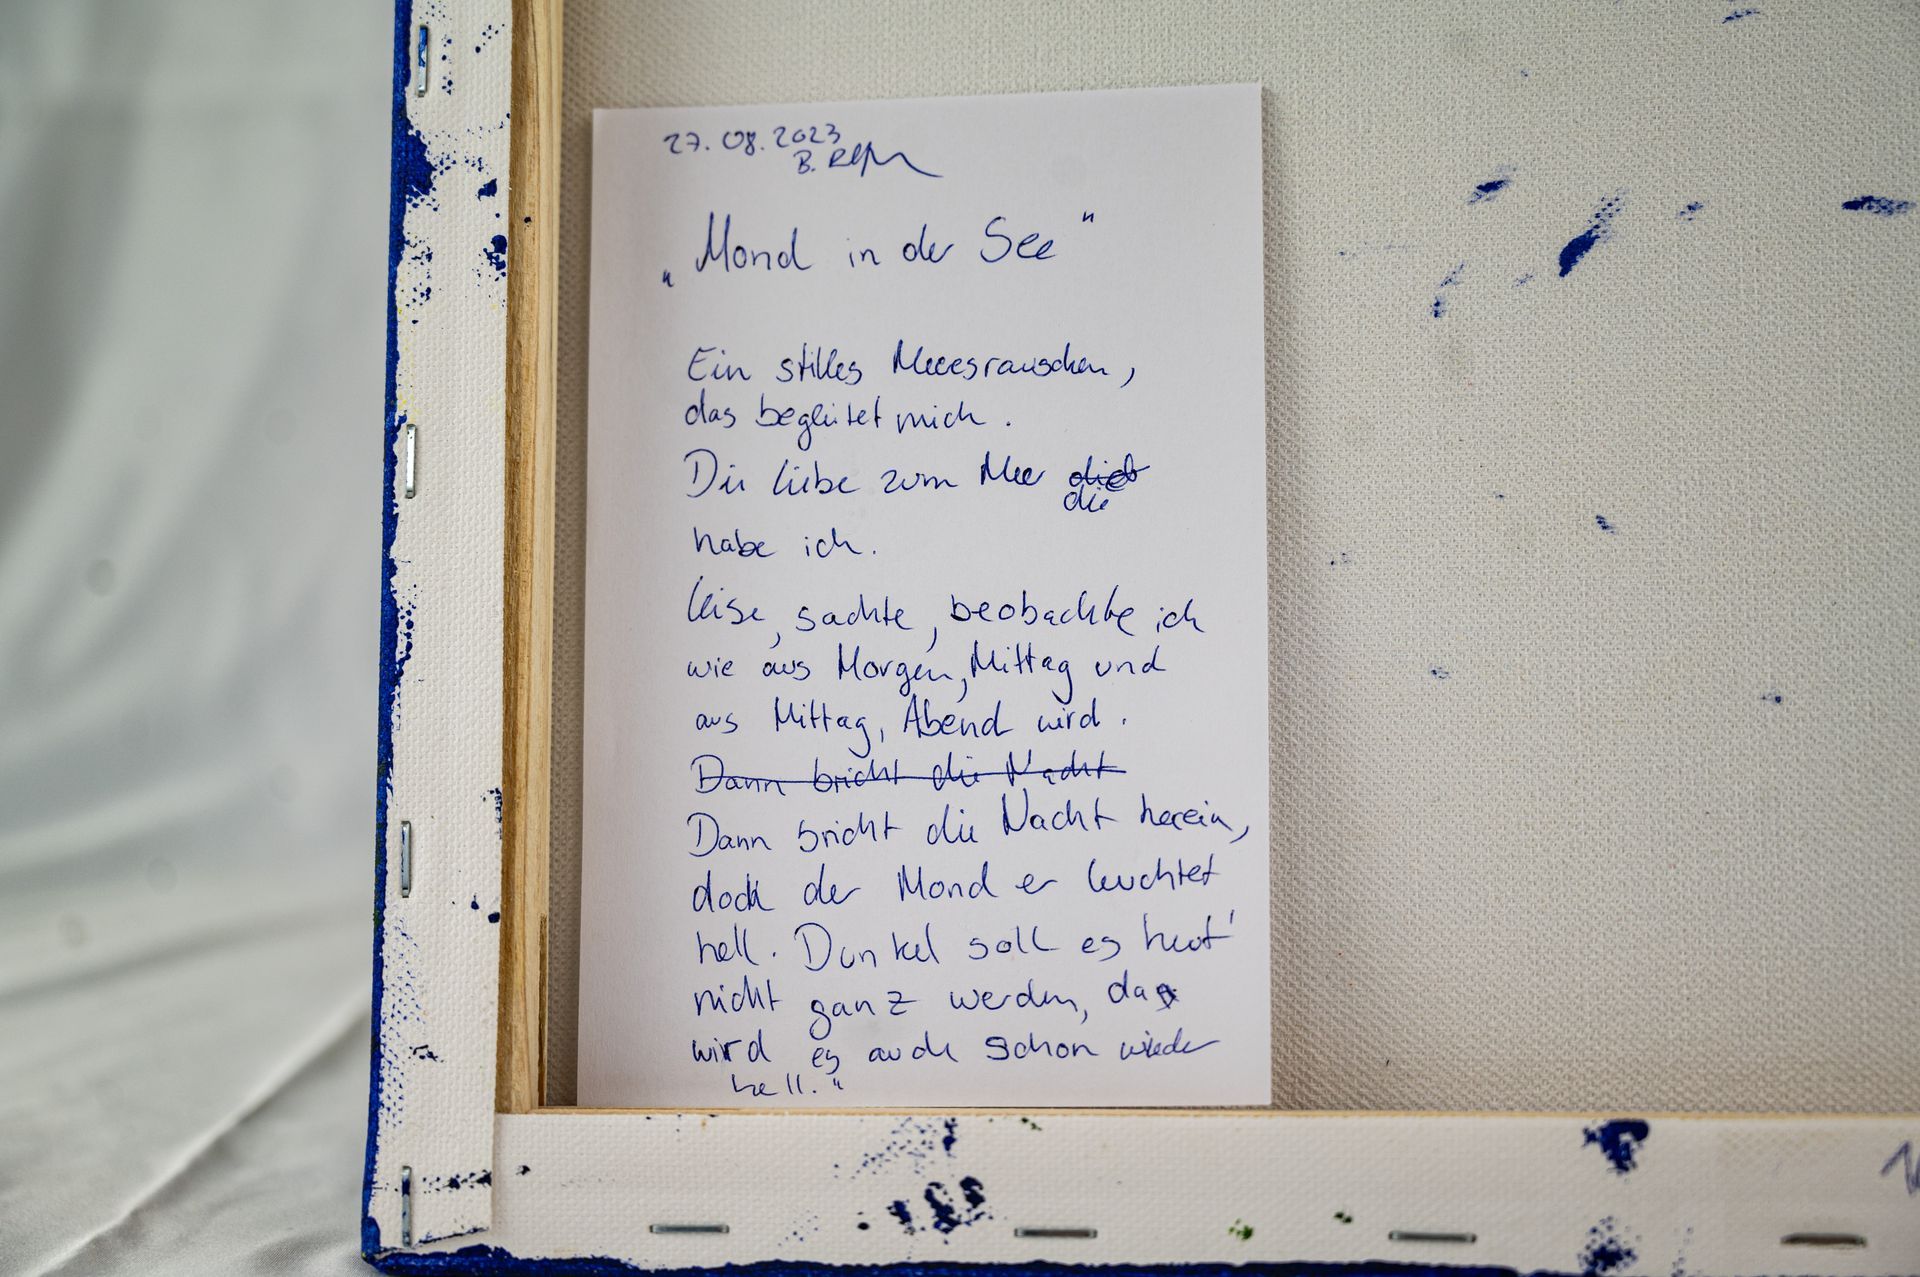 27.08.2023
B.
„Mond in der See"
Ein stilles Meeresrauschen,
das begleitet mich.
Die Liebe zum Meer
die
habe ich.
Leise, sachte, beobachte ich
wie aus Morgen, Mittag und
aus Mittag, Abend wird.
Dann bricht die Nacht
Dann bricht die Nacht herein,
doch der Mond er leuchtet
hell. Dunkel soll es heut'
nicht ganz werden, da
wird es auch schon wieder
hell."